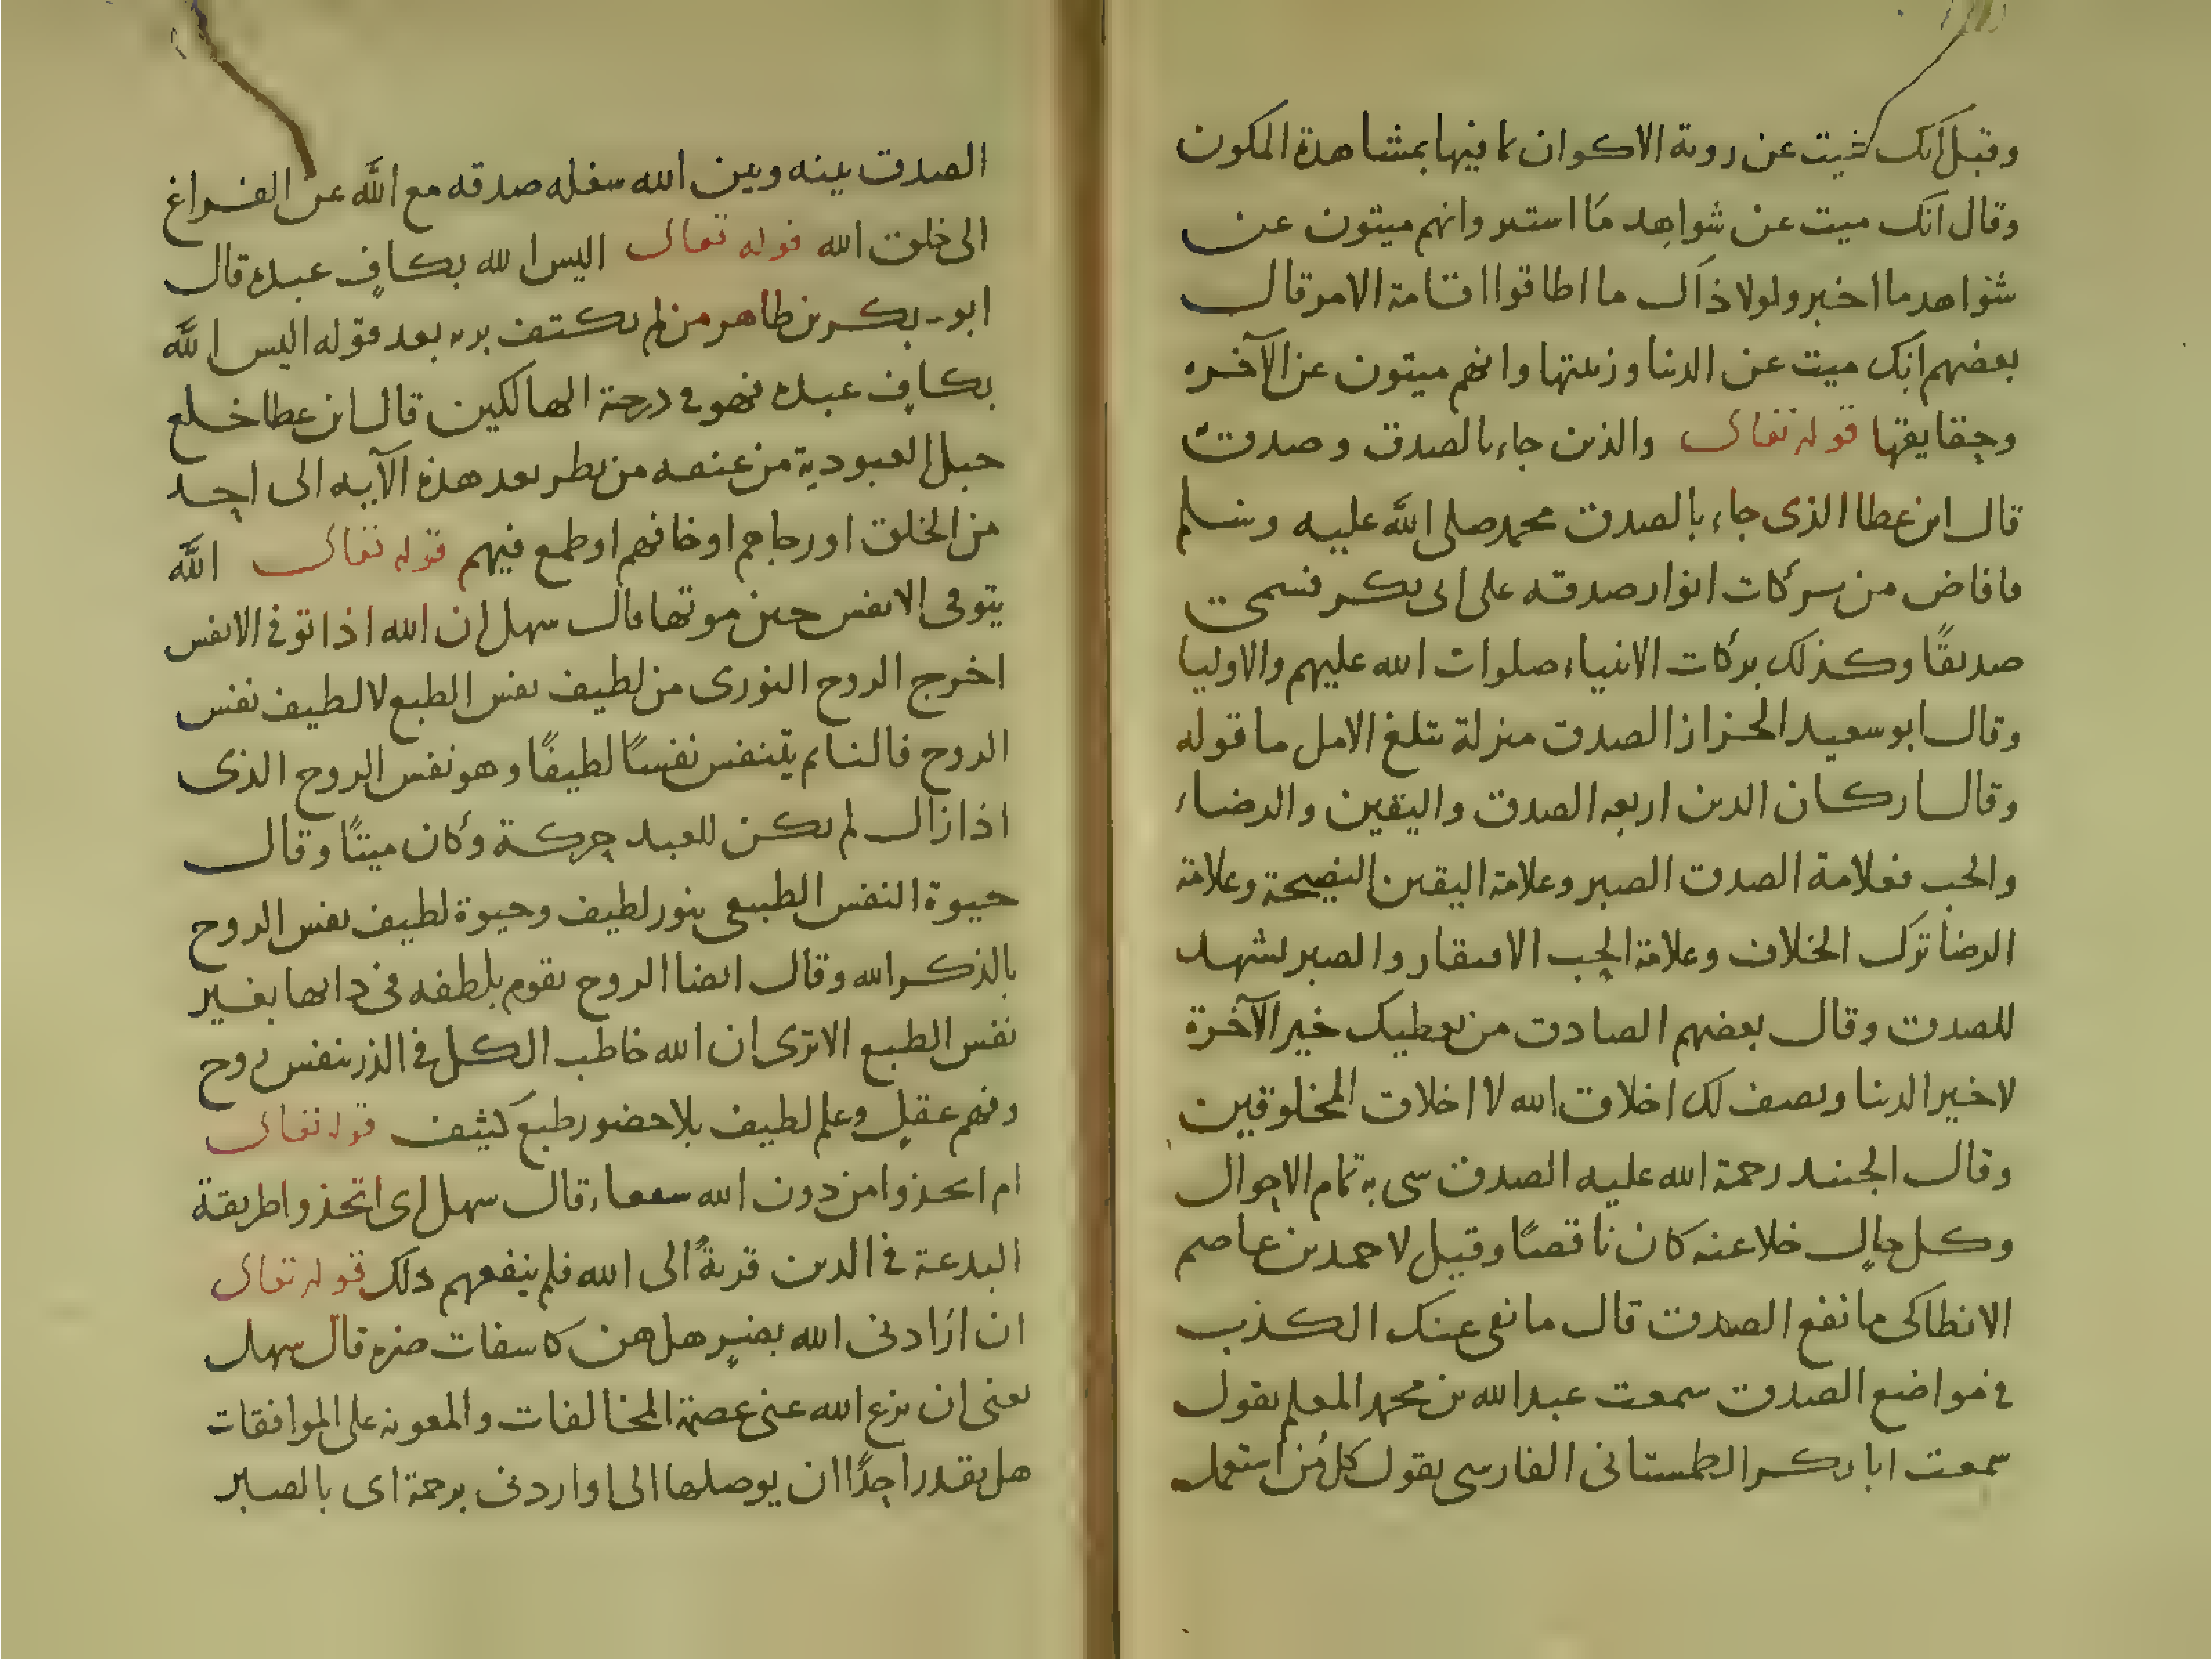 وقيل انك ميت عن روية الاكوان بما فيها بمشاهدة المكون
وقال انك ميت عن شواهد ما استتر وانهم ميتون عن
شواهد ما اخبر ولولا ذاك ما اطاقوا اقامة الامر قال
بعضهم انك ميت عن الدنيا وزينتها وانهم ميتون عن الآخره
وحقايقها قوله تعالى والذى جاء بالصدق وصدق
قال ابن عطا الذى جاء بالصدق محمد صلى الله عليه وسلم
فافاض من بركات انوار صدقه على ابى بكر فسمى
صديقًا وكذلك بركات الانبياء صلوات الله عليهم والاوليا
وقال ابو سعيد الخراز الصدق منزلة تبلغ الامل ما قوله
وقال اركان الدين اربعه الصدق واليقين والرضاء
والحب فعلامة الصدق الصبر وعلامة اليقين النصيحة وعلامة
الرضا ترك الخلاف وعلامة الحب الايثار والصبر يشهد
للصدق وقال بعضهم الصادق من يعطيك خير الآخرة
لا خير الدنيا ويصف لك اخلاق الله لا اخلاق المخلوقين
وقال الجنيد رحمة الله عليه الصدق شى به تمام الاحوال
وكل حال خلا عنه كان ناقصًا وقيل لاحمد بن عاصم
الانطاكى ما نفع الصدق قال ما نفى عنك الكذب
فى مواضع الصدق سمعت عبد الله بن محمد المعلم يقول
سمعت ابا بكر الطمستانى الفارسى يقول كل من استعمل
الصدق بينه وبين الله شغله صدقه مع الله عن الفراغ
الى خلق الله قوله تعالى اليس الله بكاف عبده قال
ابو بكر بن طاهر من لم يكتف بربه بعد قوله اليس الله
بكاف عبده فهو فى درجة الهالكين قال ابن عطا خلع
حبل العبودية من عنقه من نظر بعد هذه الآيه الى احد
من الخلق او رجاهم او خافهم او طمع فيهم قوله تعالى الله
يتوفى الانفس حين موتها قال سهل ان الله اذا توفى الانفس
اخرج الروح النورى من لطيف نفس الطبع لا لطيف نفس
الروح فالنائم يتنفس نفسًا لطيفًا وهو نفس الروح الذى
اذا زال لم يكن للعبد حركة وكان ميتًا وقال
حيوة النفس الطبيعى بنور لطيف وحيوة لطيف نفس الروح
بالذكر الله وقال ايضا الروح يقوم بلطفه فى ذاتها بغير
نفس الطبع الا ترى ان الله خاطب الكل فى الذر بنفس روح
وفهم عقل وعلم لطيف بلا حضور طبع كثيف قوله تعالى
ام اتخذوا من دون الله شفعاء قال سهل اى اتخذوا طريقة
البدعة فى الدين قربةً الى الله فلم ينفعهم ذلك قوله تعالى
ان ارادنى الله بضر هل هن كاشفات ضره قال سهل
يعنى ان نزع الله عنى عصمة المخالفات والمعونه على الموافقات
هل يقدر احدًا ان يوصلها الى او اردنى برحمة اى بالصبر